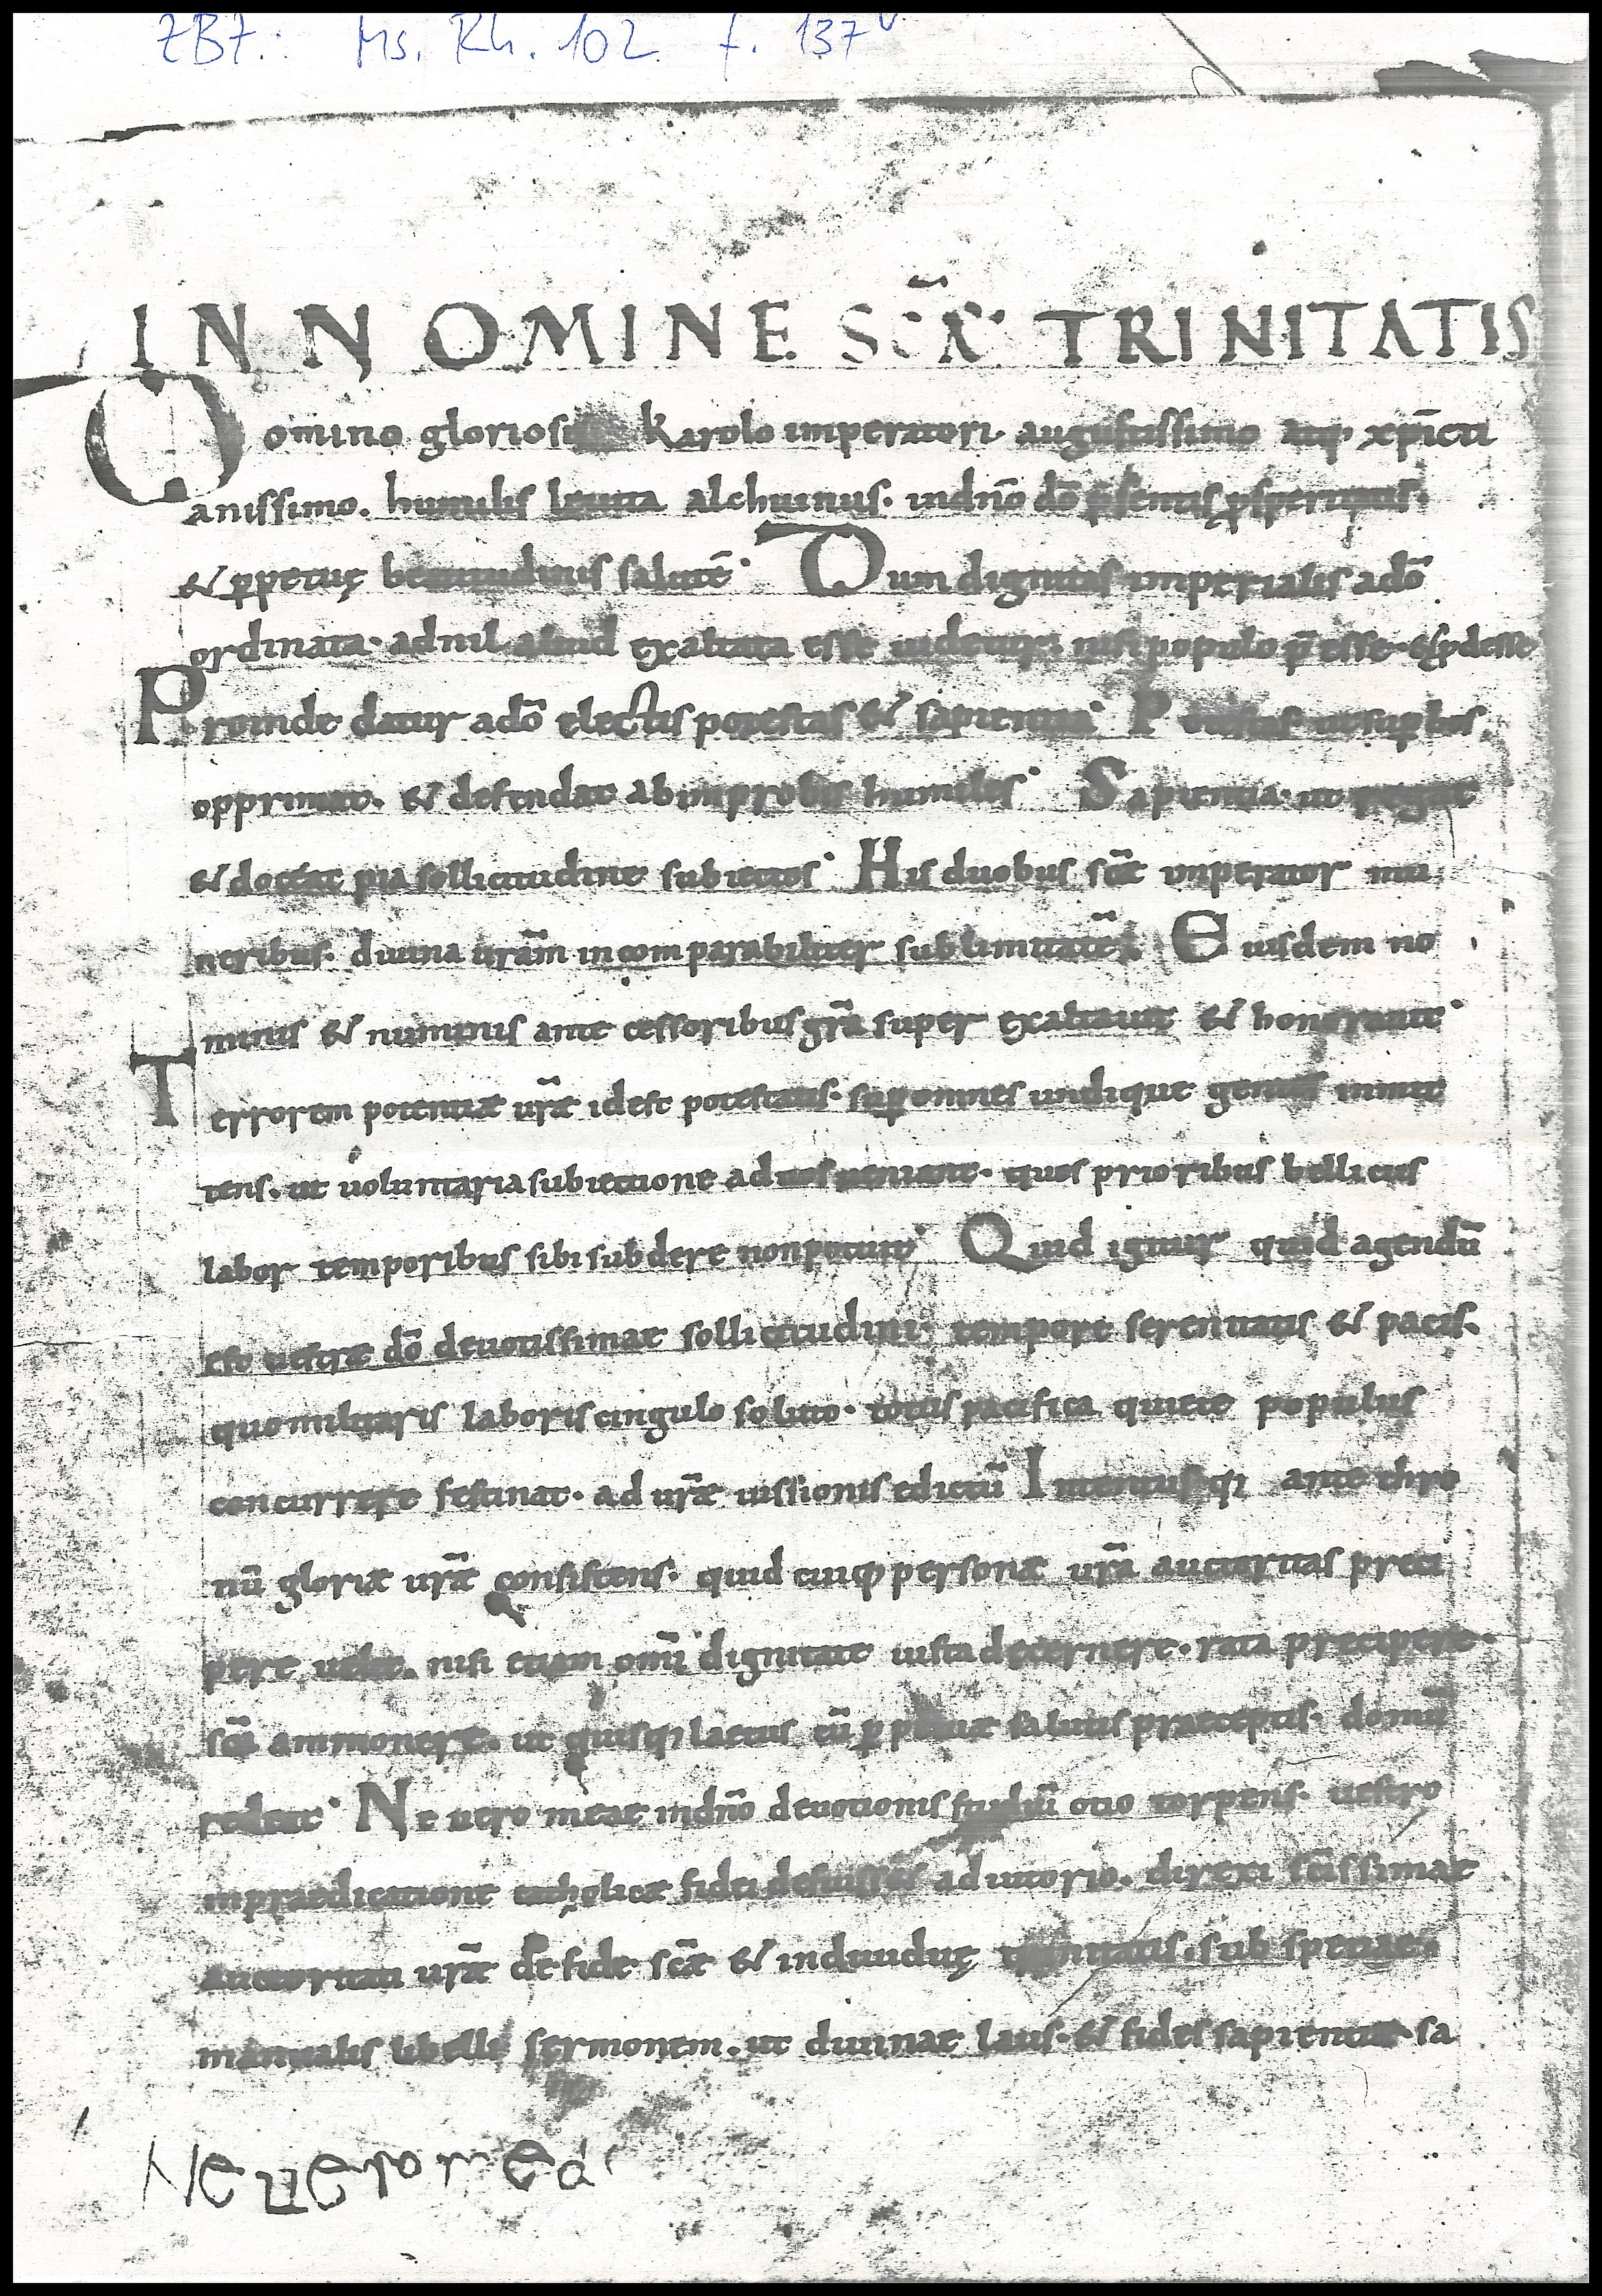 ZBZ.: Ms. Rh. 102 f. 137v
IN NOMINE SC̄AE TRINITATIS
Domino glorioso karolo imperatori augustissimo atq; xp̄icti
anissimo. humilis leuita alchuinus. indn̄o dō p̄sentis ꝓsperitatis.
& ꝑpetuę beatitudinis salutē. Dum dignitas imperialis adō
ordinata. adnil aliud exaltata esse uidetur. nisi populo p̄esse. & ꝓdesse
Proinde datur adō electis potestas & sapientia. P otestas ut suꝑbos
opprimat. & defendat ab improbis humiles. Sapientia. ut regat
& doceat pia sollicitudine subiectos. His duobus scǣ imperator mu
neribus. diuina urām incomparabiliter sublimitatē. Eiusdem no
minis & numinis ante cessoribus grā super exaltauit & honorauit.
Terrorem potentiæ urǣ idest potestatis. suꝑ omnes undique gentes inmit
tens. ut uoluntaria subiectione ad uos ueniant. quos prioribus bellicus
labor temporibus sibi subdere non potuit. Quid igitur quid agendū
est uestræ dō deuotissimae sollicitudini. tempore serenitatis & pacis.
quo militaris laboris cingulo soluto. totus pacifica quiete populus
concurrere festinat. ad urǣ iussionis edictū Intentusq; ante thro
nū gloriæ urǣ consistens. quid cuiq; personæ urā auctoritas preci
pere uelit. nisi etiam om̄i dignitate iusta decernere. rata precipere.
scā ammonere. ut quisq; laetus cū ꝑpetuæ salutis praeceptis. domū
redeat. Ne uero meae indn̄o deuotionis studiū otio torpens. uestro
inpraedicatione catholicæ fidei defuisset adiutorio. direxi scīssimae
auctoritati urǣ de fide scǣ & indiuiduę trinitatis. sub specie
manualis libelli sermonem. ut diuinae laus. & fides sapientiæ. sa
Ne uero mea